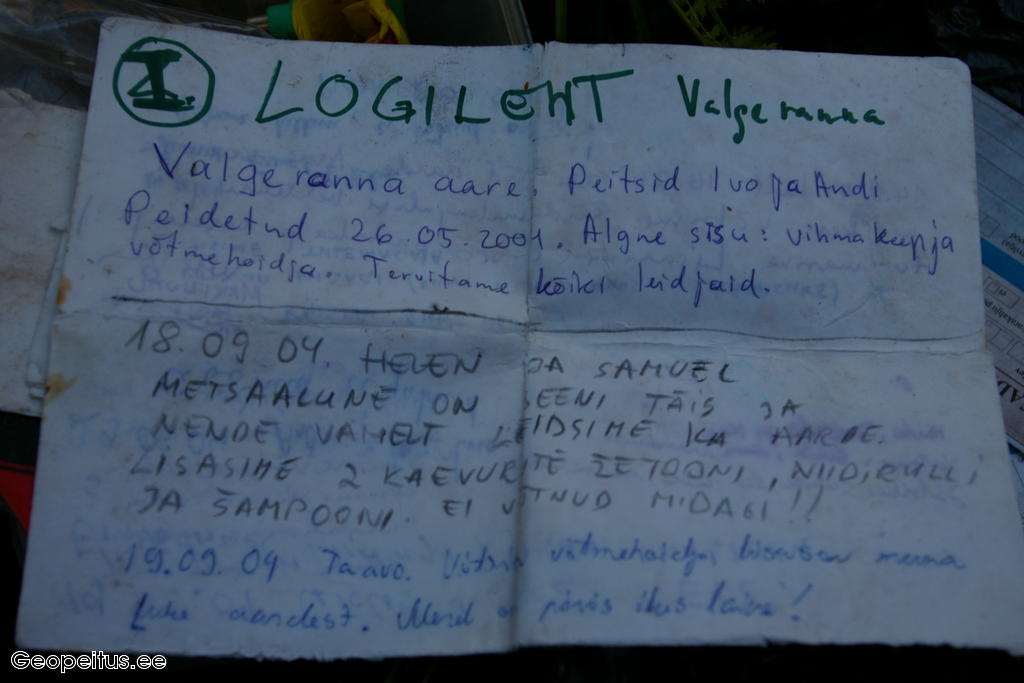 I. LOGILEHT Valgeranna
Valgeranna aare. Peitsid Ivo ja Andi
Peidetud 26.05.2001. Algne sisu: vihmakeep ja
võtmehoidja. Tervitame kõiki leidjaid.
18.09.04. HELEN JA SAMUEL
METSAALUNE ON SEENI TÄIS JA
NENDE VAHELT LEIDSIME KA AARDE.
LISASIME 2 KAEVURITE ŽETOONI, NIIDIRULLI
JA ŠAMPOONI. EI VÕTNUD MIDAGI!!
19.09.04 Taavo. Võtsin võtmehoidja, lisasin
aardest. Merel on päris ilus laine!
Geopeitus.ee